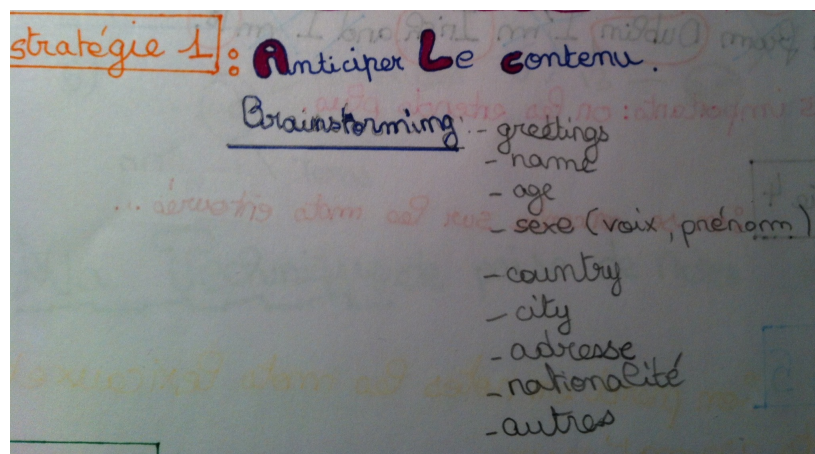 stratégie 1 : Anticiper Le contenu.
Brainstorming : - greetings
- name
- age
- sexe (voix, prénom)
- country
- city
- adresse
- nationalité
- autres